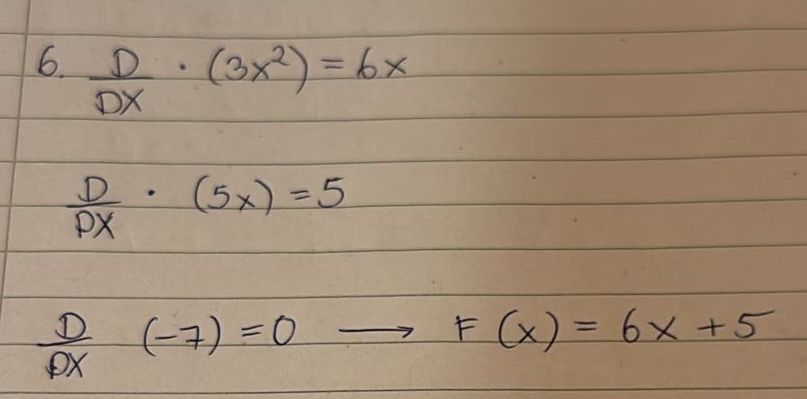 6. D/DX · (3x²) = 6x
D/DX · (5x) = 5
D/DX (-7) = 0 → F(x) = 6x + 5